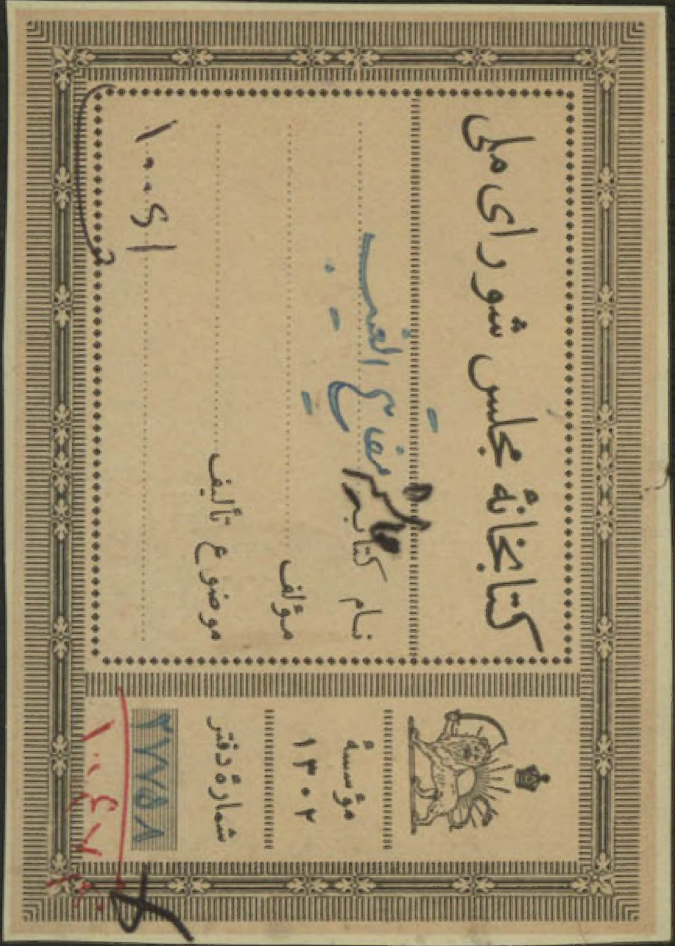 کتابخانهٔ مجلس شورای ملی
نام کتاب مفاتیح الغیب
مؤلف
موضوع تألیف
مؤسسهٔ
۱۳۰۲
شماره دفتر
۲۷۷۵۸